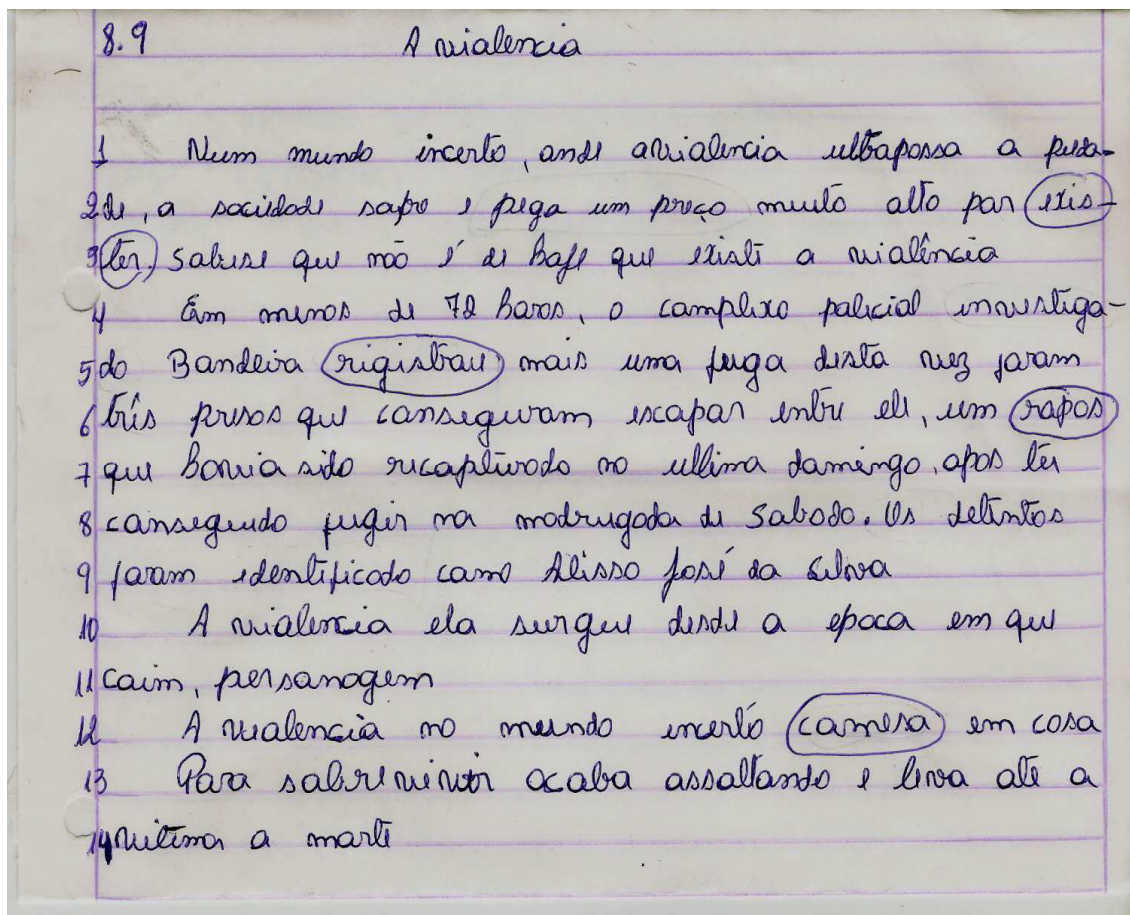 8.9 A violencia
1 Num mundo incerto, onde aviolencia ultrapassa a pieda-
2 de, a sociedade sofre e pega um preço muito alto por exis-
3 ter, sabese que não é de hoje que existi a violência
4 Em menos de 72 horas, o complexo policial investiga-
5 do Bandeira rigistrou mais uma fuga desta vez foram
6 três presos que conseguiram escapar entre ele, um rapos
7 que havia sido recaptivado no ultima domingo, apos ter
8 conseguido fugir na madrugada de Sabado. Os detintos
9 foram identificado como Alisso José da Silva
10 A violencia ela surgeu desde a epoca em que
11 caim, personagem
12 A violencia no mundo incerto comesa em casa
13 Para sobreviver acaba assaltando e leva ate a
14 vitima a morte